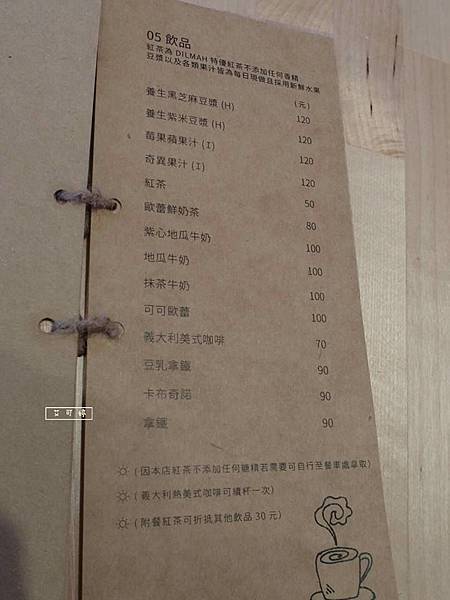 05 飲品
紅茶為 DILMAH 特優紅茶不添加任何香精
豆漿以及各類果汁皆為每日現做且採用新鮮水果
(元)
養生黑芝麻豆漿 (H) 120
養生紫米豆漿 (H) 120
莓果蘋果汁 (I) 120
奇異果汁 (I) 120
紅茶 50
歐蕾鮮奶茶 80
紫心地瓜牛奶 100
地瓜牛奶 100
抹茶牛奶 100
可可歐蕾 100
義大利美式咖啡 70
豆乳拿鐵 90
卡布奇諾 90
拿鐵 90
(因本店紅茶不添加任何糖精若需要可自行至餐車處拿取)
(義大利熱美式咖啡可續杯一次)
(附餐紅茶可折抵其他飲品 30 元)
艾可婷